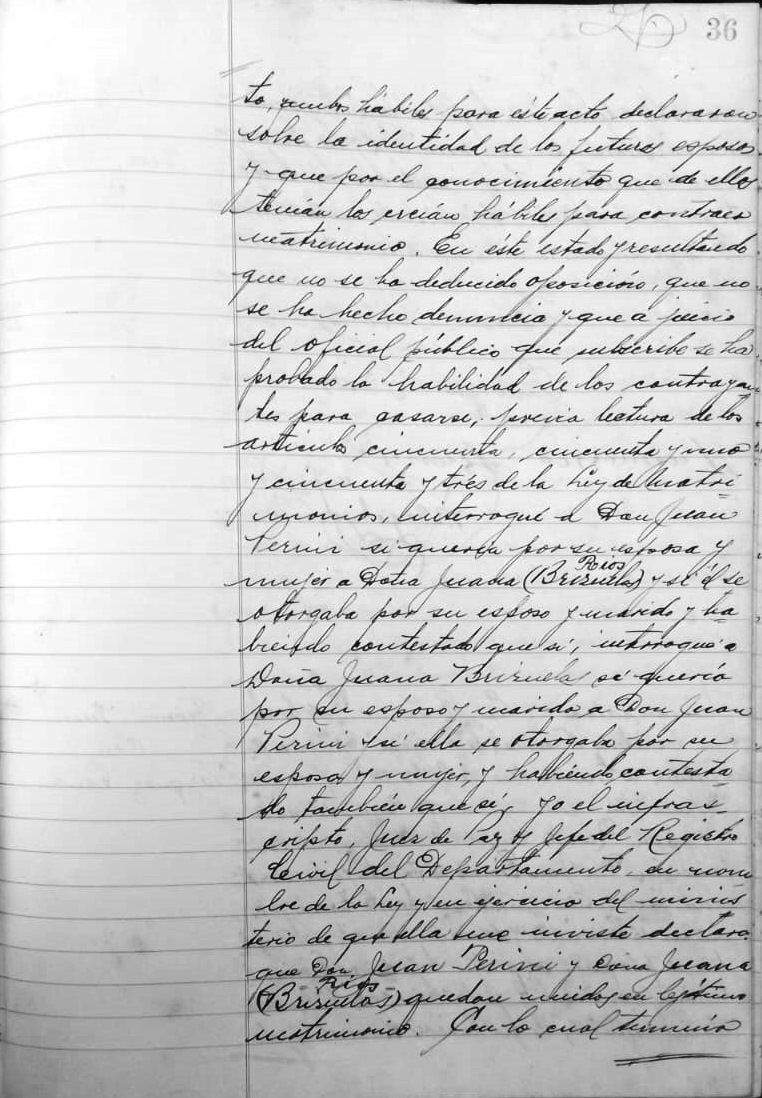 36
to, ambos hábiles para éste acto declararon
sobre la identidad de los futuros esposos
y que por el conocimiento que de ellos
tenían los creían hábiles para contraer
matrimonio. En éste estado y resultando
que no se ha deducido oposición, que no
se ha hecho denuncia y que a juicio
del oficial público que subscribe se ha
probado la habilidad de los contrayen
tes para casarse, previa lectura de los
artículos cincuenta, cincuenta y uno
y cincuenta y trés de la Ley de Matri
monios, interrogué a Don Juan
Perini si quería por su esposa y
Rios
mujer a Doña Juana (Brizuela) y si él se
otorgaba por su esposo y marido y ha
biendo contestado que sí, interrogué a
Doña Juana Brizuelas si quería
por su esposo y marido a Don Juan
Perini y si ella se otorgaba por su
esposa y mujer, y habiendo contesta
do también que sí, yo el infras
cripto, Juez de Paz y Jefe del Registro
Civil del Departamento, en nom
bre de la Ley y en ejercicio del minis
terio de que ella me inviste declaro
que Don Juan Perini y Doña Juana
Rios
(Brizuelas) quedan unidos en legítimo
matrimonio. Con lo cual terminó